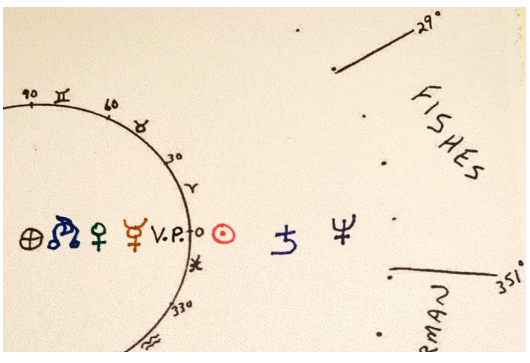 29°
FISHES
90
♊
60
♉
30
♈
⊕ ☊ ♀ ☿ V.P. 0 ☉ ♄ ♆
♓
351°
330
♒
RMAN